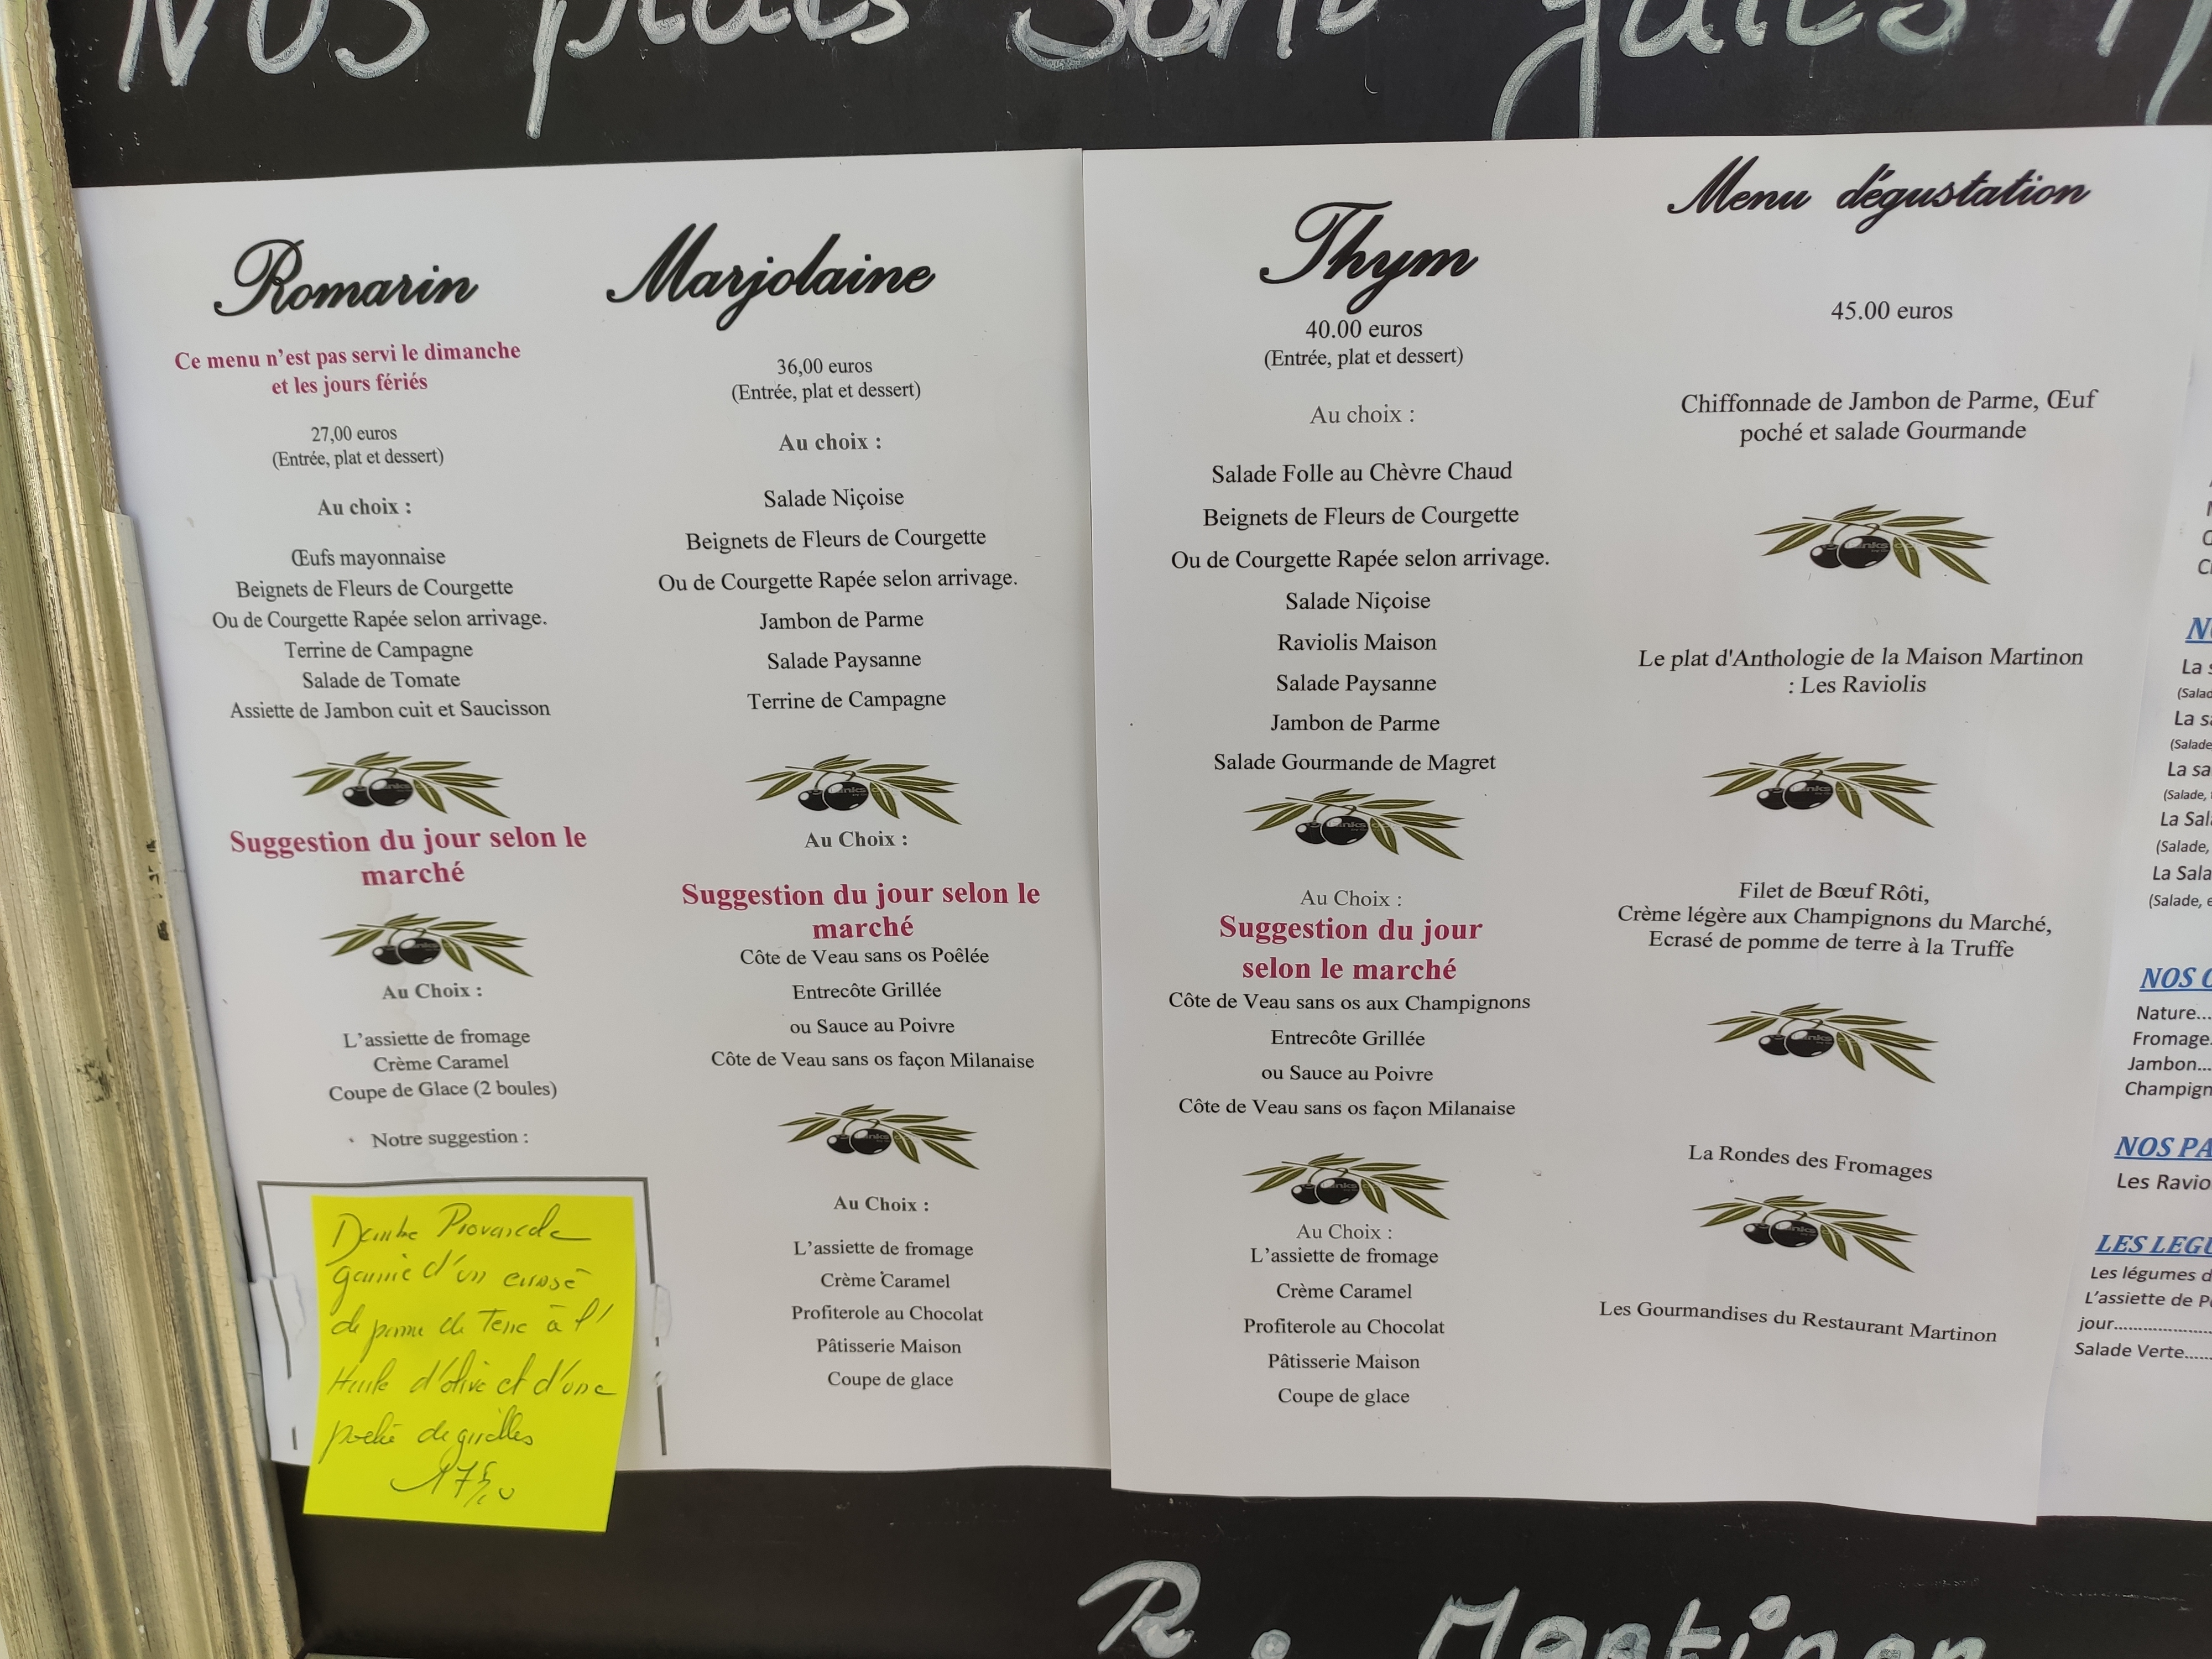 Nos plats sont faits
Romarin
Ce menu n’est pas servi le dimanche
et les jours fériés
27,00 euros
(Entrée, plat et dessert)
Au choix :
Œufs mayonnaise
Beignets de Fleurs de Courgette
Ou de Courgette Rapée selon arrivage.
Terrine de Campagne
Salade de Tomate
Assiette de Jambon cuit et Saucisson
Suggestion du jour selon le
marché
Au Choix :
L’assiette de fromage
Crème Caramel
Coupe de Glace (2 boules)
Notre suggestion :
Daube Provençale
garnie d'un écrasé
de pomme de Terre à l'
Huile d'olive et d'une
poêlée de girolles
17
Marjolaine
36,00 euros
(Entrée, plat et dessert)
Au choix :
Salade Niçoise
Beignets de Fleurs de Courgette
Ou de Courgette Rapée selon arrivage.
Jambon de Parme
Salade Paysanne
Terrine de Campagne
Au Choix :
Suggestion du jour selon le
marché
Côte de Veau sans os Poêlée
Entrecôte Grillée
ou Sauce au Poivre
Côte de Veau sans os façon Milanaise
Au Choix :
L’assiette de fromage
Crème Caramel
Profiterole au Chocolat
Pâtisserie Maison
Coupe de glace
Thym
40.00 euros
(Entrée, plat et dessert)
Au choix :
Salade Folle au Chèvre Chaud
Beignets de Fleurs de Courgette
Ou de Courgette Rapée selon arrivage.
Salade Niçoise
Raviolis Maison
Salade Paysanne
Jambon de Parme
Salade Gourmande de Magret
Au Choix :
Suggestion du jour
selon le marché
Côte de Veau sans os aux Champignons
Entrecôte Grillée
ou Sauce au Poivre
Côte de Veau sans os façon Milanaise
Au Choix :
L’assiette de fromage
Crème Caramel
Profiterole au Chocolat
Pâtisserie Maison
Coupe de glace
Menu dégustation
45.00 euros
Chiffonnade de Jambon de Parme, Œuf
poché et salade Gourmande
Le plat d'Anthologie de la Maison Martinon
: Les Raviolis
Filet de Bœuf Rôti,
Crème légère aux Champignons du Marché,
Ecrasé de pomme de terre à la Truffe
La Rondes des Fromages
Les Gourmandises du Restaurant Martinon
La
(Salade,
La
(Salade,
La Sal
(Salade,
La Sala
(Salade, e
NOS
Nature...
Fromage.
Jambon...
Champign
NOS PA
Les Ravio
LES LEGU
Les légumes d
L’assiette de P
jour...................
Salade Verte......
R. Martinon